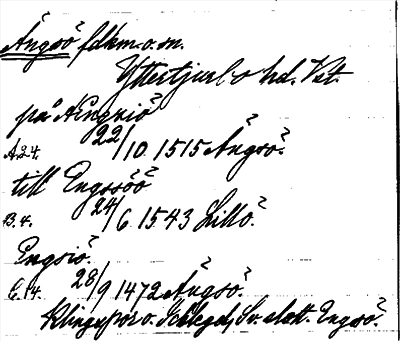 Ängsö fdkm. o. sn.
Yttertjurbo hd. Vst.
på Ængxiö
A.24. 22/10 1515 Ängsö.
till Engssöö
B.4. 24/6 1543 Lillö.
Engsiö.
C.14. 28/9 1472 Ängsö.
Klingspor o. Schlegel, Sv. slott. Engsö.